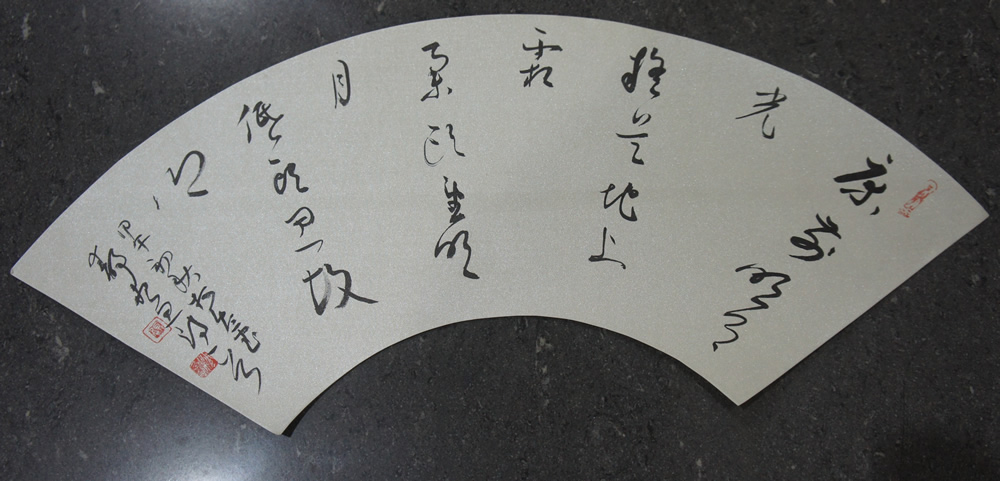 床前明月
光
疑是地上
霜
舉頭望明
月
低頭思故
鄉
甲午初秋